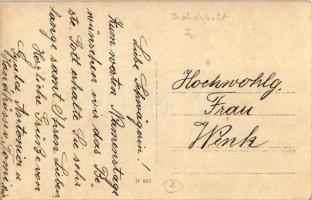 Liebe Schwägerin!
Zum werten Namenstage
wünschen wir das Be-
ste Gott erhalte Sie sehr
lange samt Ihren Lieben
Herzliche Grüße von
Gyula, Antonia u.
Hochwohlg.
Frau
Wenk
2